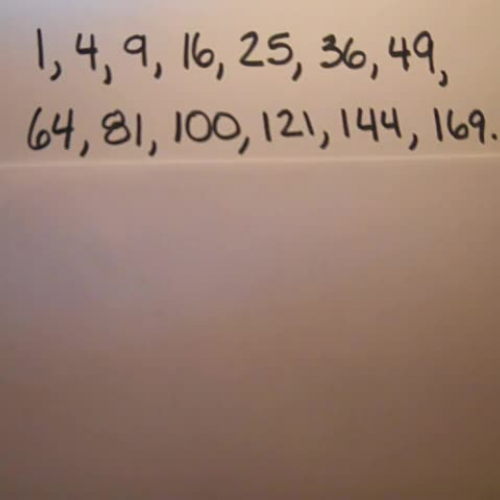 1, 4, 9, 16, 25, 36, 49,
64, 81, 100, 121, 144, 169.